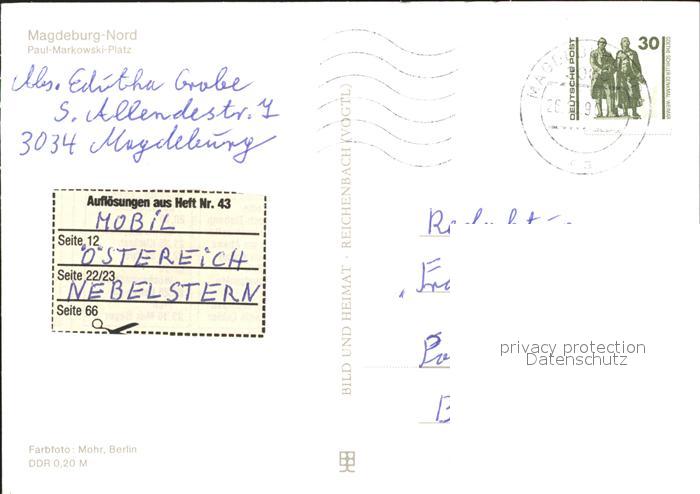 Magdeburg-Nord
Paul-Markowski-Platz
Abs. Edutha Grabe
S. Allendestr. 7
3034 Magdeburg
Auflösungen aus Heft Nr. 43
MOBIL
Seite 12
ÖSTEREICH
Seite 22/23
NEBELSTERN
Seite 66
Farbfoto: Mohr, Berlin
DDR 0,20 M
BILD UND HEIMAT · REICHENBACH (VOGTL)
DEUTSCHE POST
30
GOETHE-SCHILLER-DENKMAL WEIMAR
privacy protection
Datenschutz